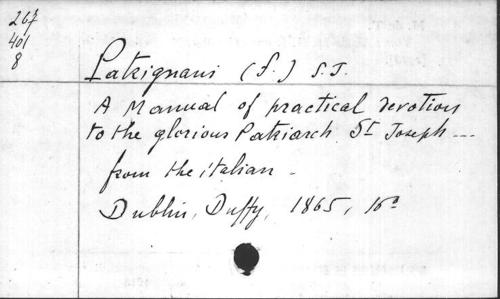 267
401
8
Patrignani (F.) S.J.
A Manual of practical devotion
to the glorious Patriarch St Joseph ---
from the italian -
Dublin, Duffy, 1865, 16°